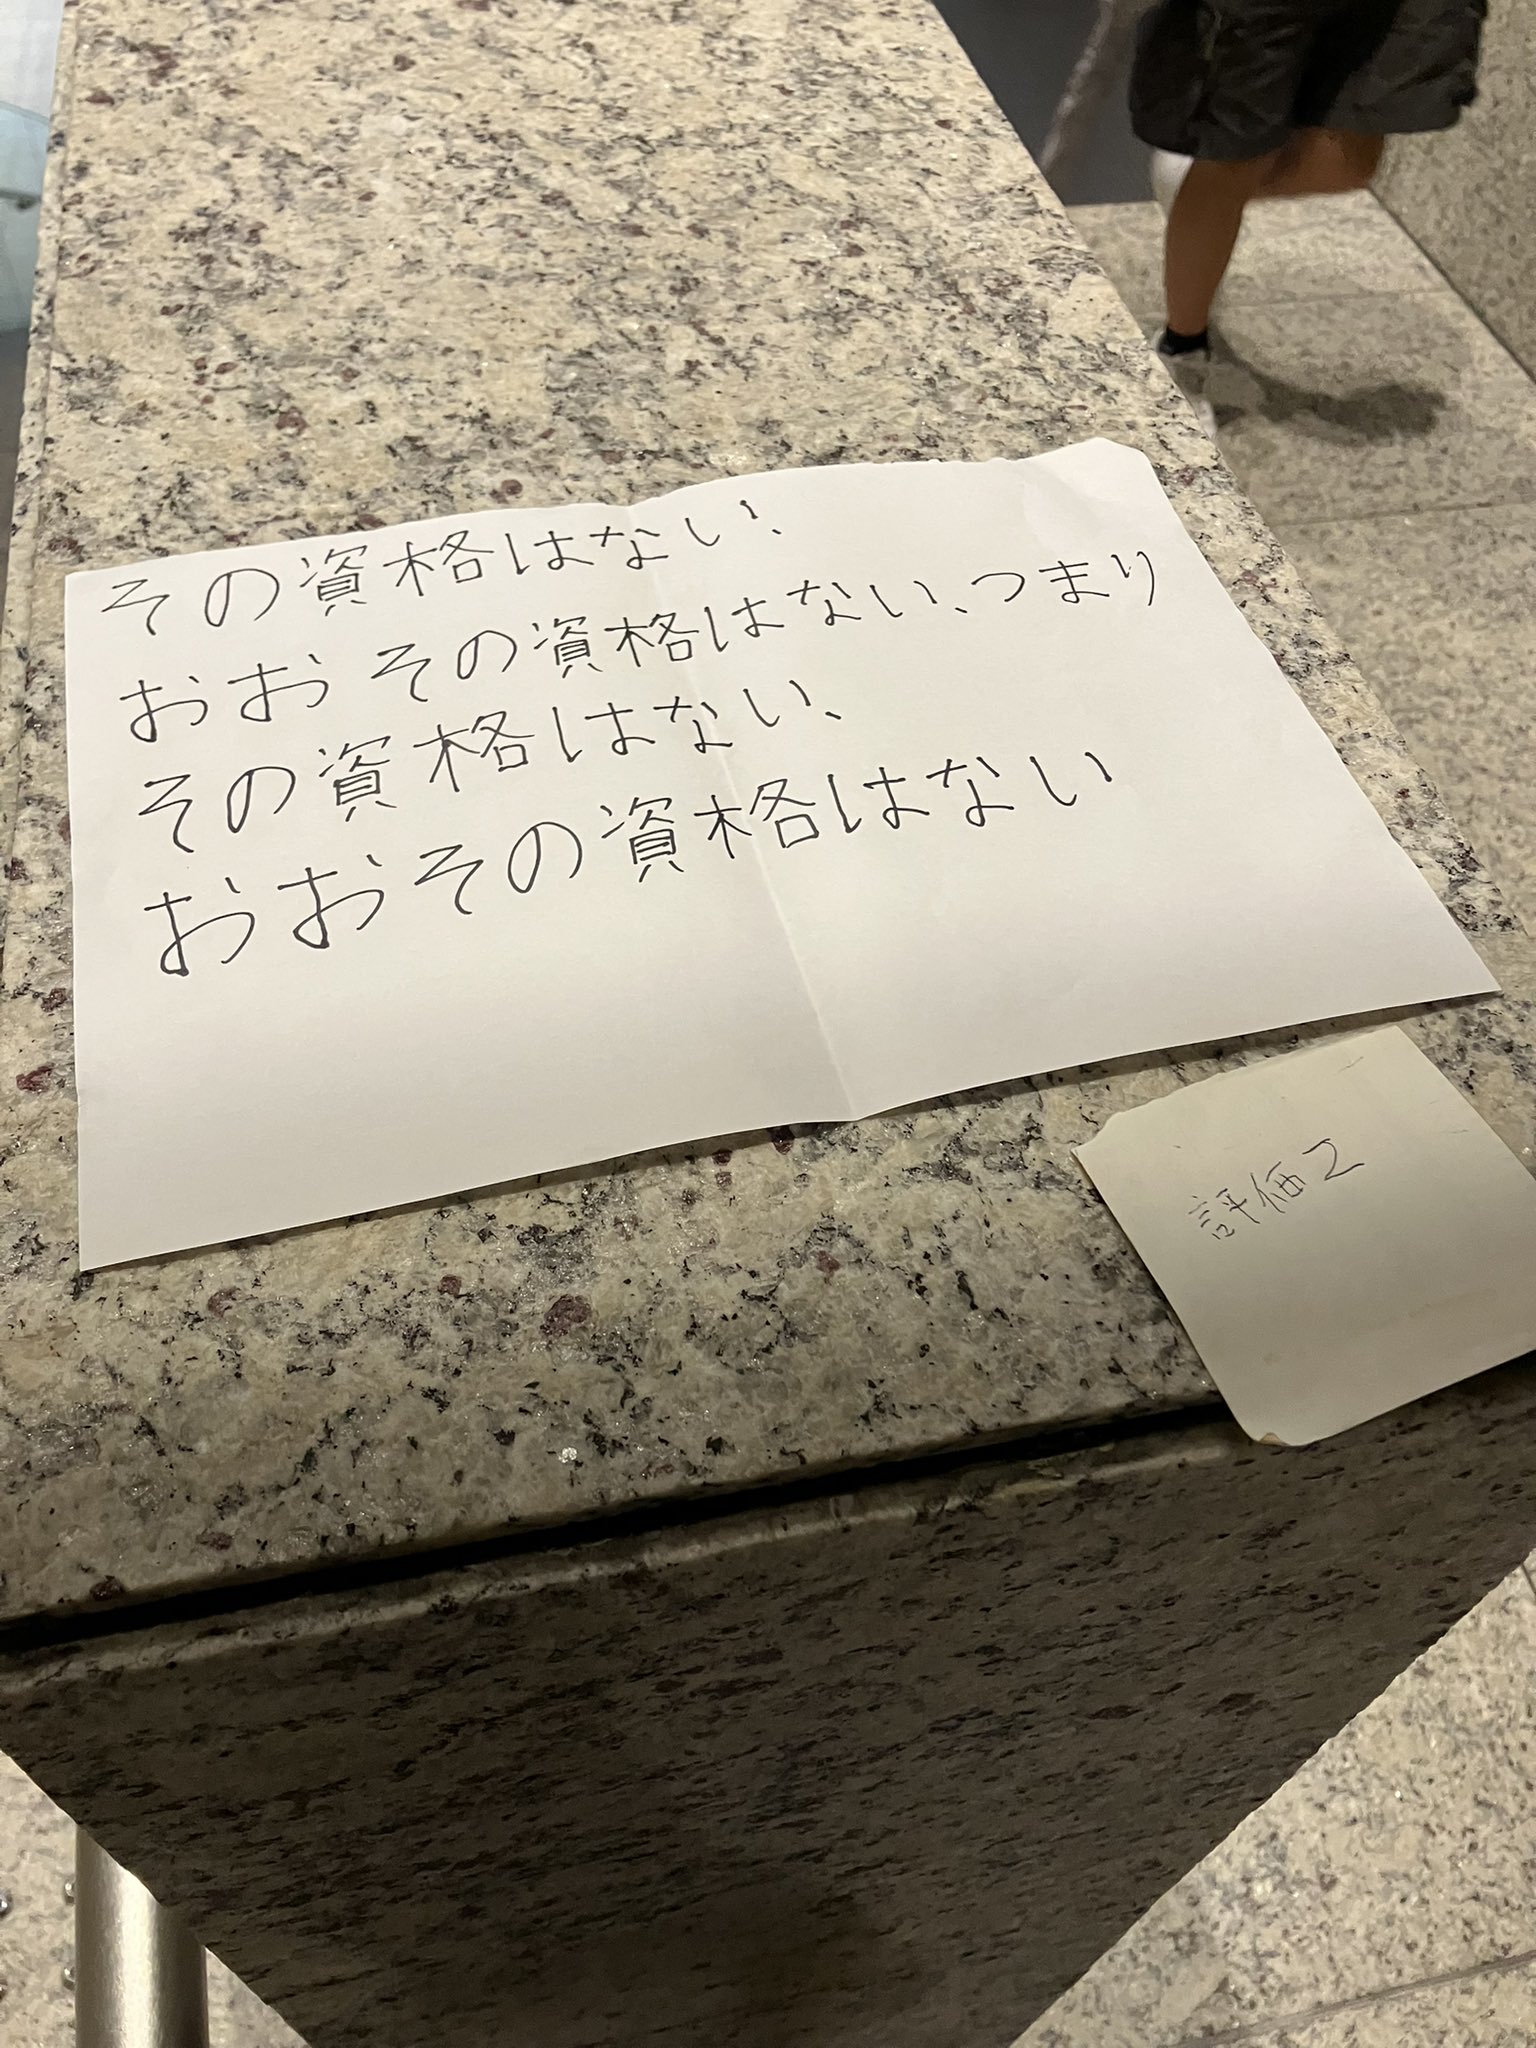 その資格はない、
おお その資格はない、つまり
その資格はない、
おおその資格はない
評価2